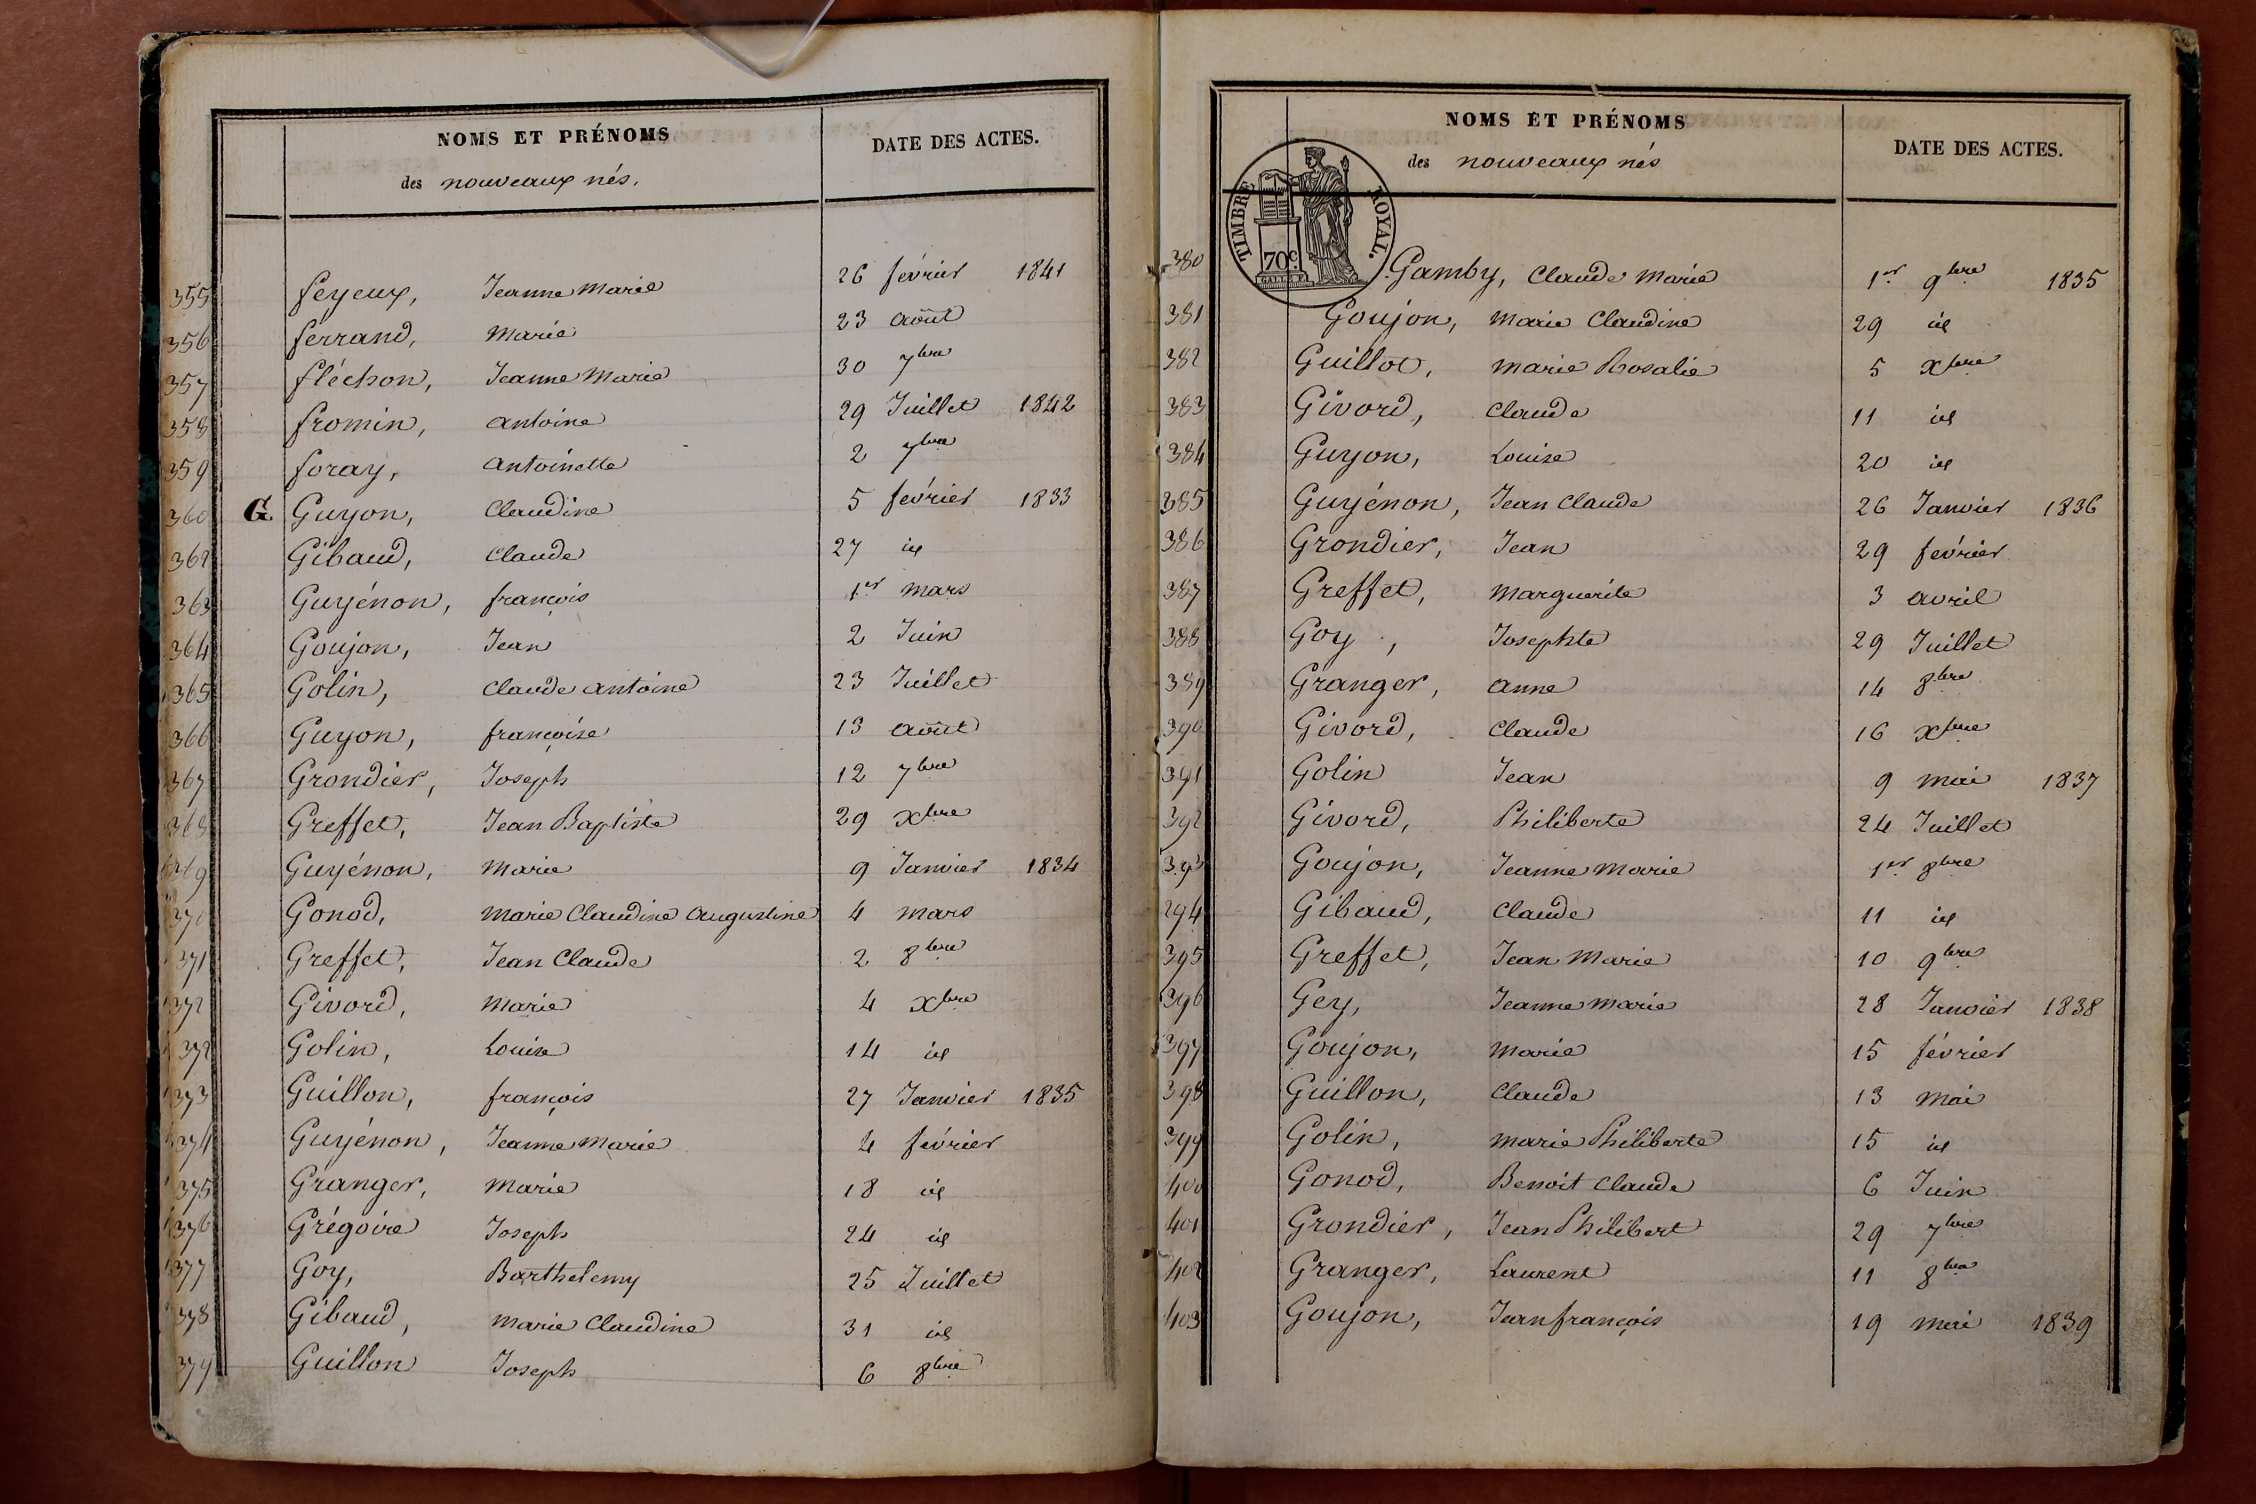 NOMS ET PRÉNOMS
des nouveaux nés.
DATE DES ACTES.
355 feyeux, Jeanne Marie 26 février 1841
356 ferrand, Marie 23 août
357 fléchon, Jeanne Marie 30 7bre
358 fromin, antoine 29 Juillet 1842
359 foray, antoinette 2 7bre
360 G. Guyon, Claudine 5 février 1833
362 Gibaud, Claude 27 id
363 Guyénon, françois 1er mars
364 Goujon, Jean 2 Juin
365 Golin, Claude antoine 23 Juillet
366 Guyon, françoise 13 août
367 Grondier, Joseph 12 7bre
368 Greffet, Jean Baptiste 29 xbre
Guyénon, Marie 9 Janvier 1834
370 Gonod, Marie Claudine Augustine 4 mars
371 Greffet, Jean Claude 2 8bre
372 Givord, Marie 4 xbre
372 Golin, Louise 14 id
373 Guillon, françois 27 Janvier 1835
374 Guyénon, Jeanne Marie 4 février
375 Granger, Marie 18 id
376 Grégoire Joseph 24 id
377 Goy, Barthelemy 25 Juillet
378 Gibaud, Marie Claudine 31 id
379 Guillon Joseph 6 8bre
NOMS ET PRÉNOMS
des nouveaux nés
DATE DES ACTES.
TIMBRE ROYAL.
70c.
380 Gamby, Claude Marie 1er 9bre 1835
381 Goujon, Marie Claudine 29 id
382 Guillot, Marie Rosalie 5 xbre
383 Givord, Claude 11 id
384 Guyon, Louise 20 id
385 Guyénon, Jean Claude 26 Janvier 1836
386 Grondier, Jean 29 février
387 Greffet, Marguerite 3 avril
388 Goy, Josephte 29 Juillet
389 Granger, anne 14 8bre
390 Givord, Claude 16 xbre
391 Golin Jean 9 mai 1837
392 Givord, Philiberte 24 Juillet
393 Goujon, Jeanne Marie 1er 8bre
394 Gibaud, Claude 11 id
395 Greffet, Jean Marie 10 9bre
396 Gey, Jeanne Marie 28 Janvier 1838
397 Goujon, Marie 15 février
398 Guillon, Claude 13 mai
399 Golin, Marie Philiberte 15 id
400 Gonod, Benoit Claude 6 Juin
401 Grondier, Jean Philibert 29 7bre
402 Granger, Laurent 11 8bre
403 Goujon, Jean françois 19 mai 1839